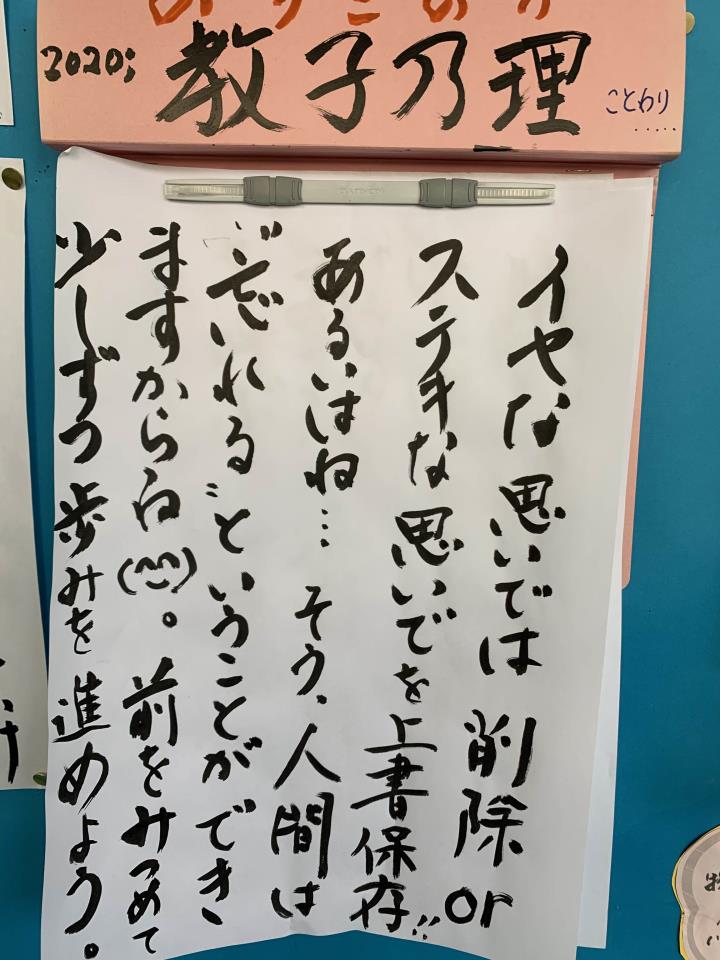 2020; 教子乃理 ことわり.....
イヤな思いでは削除or
ステキな思いでを上書保存!!
あるいはね… そう、人間は
"忘れる"ということができ
ますからね(^^)。前をみつめて
少しずつ歩みを進めよう。